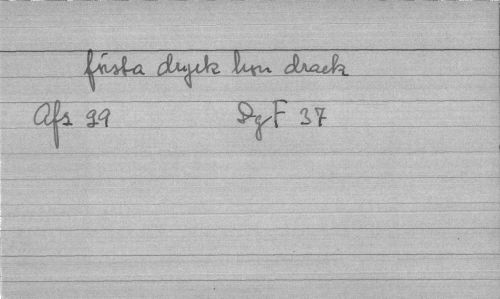 första dryck hon drack
Afs 99 DgF 37